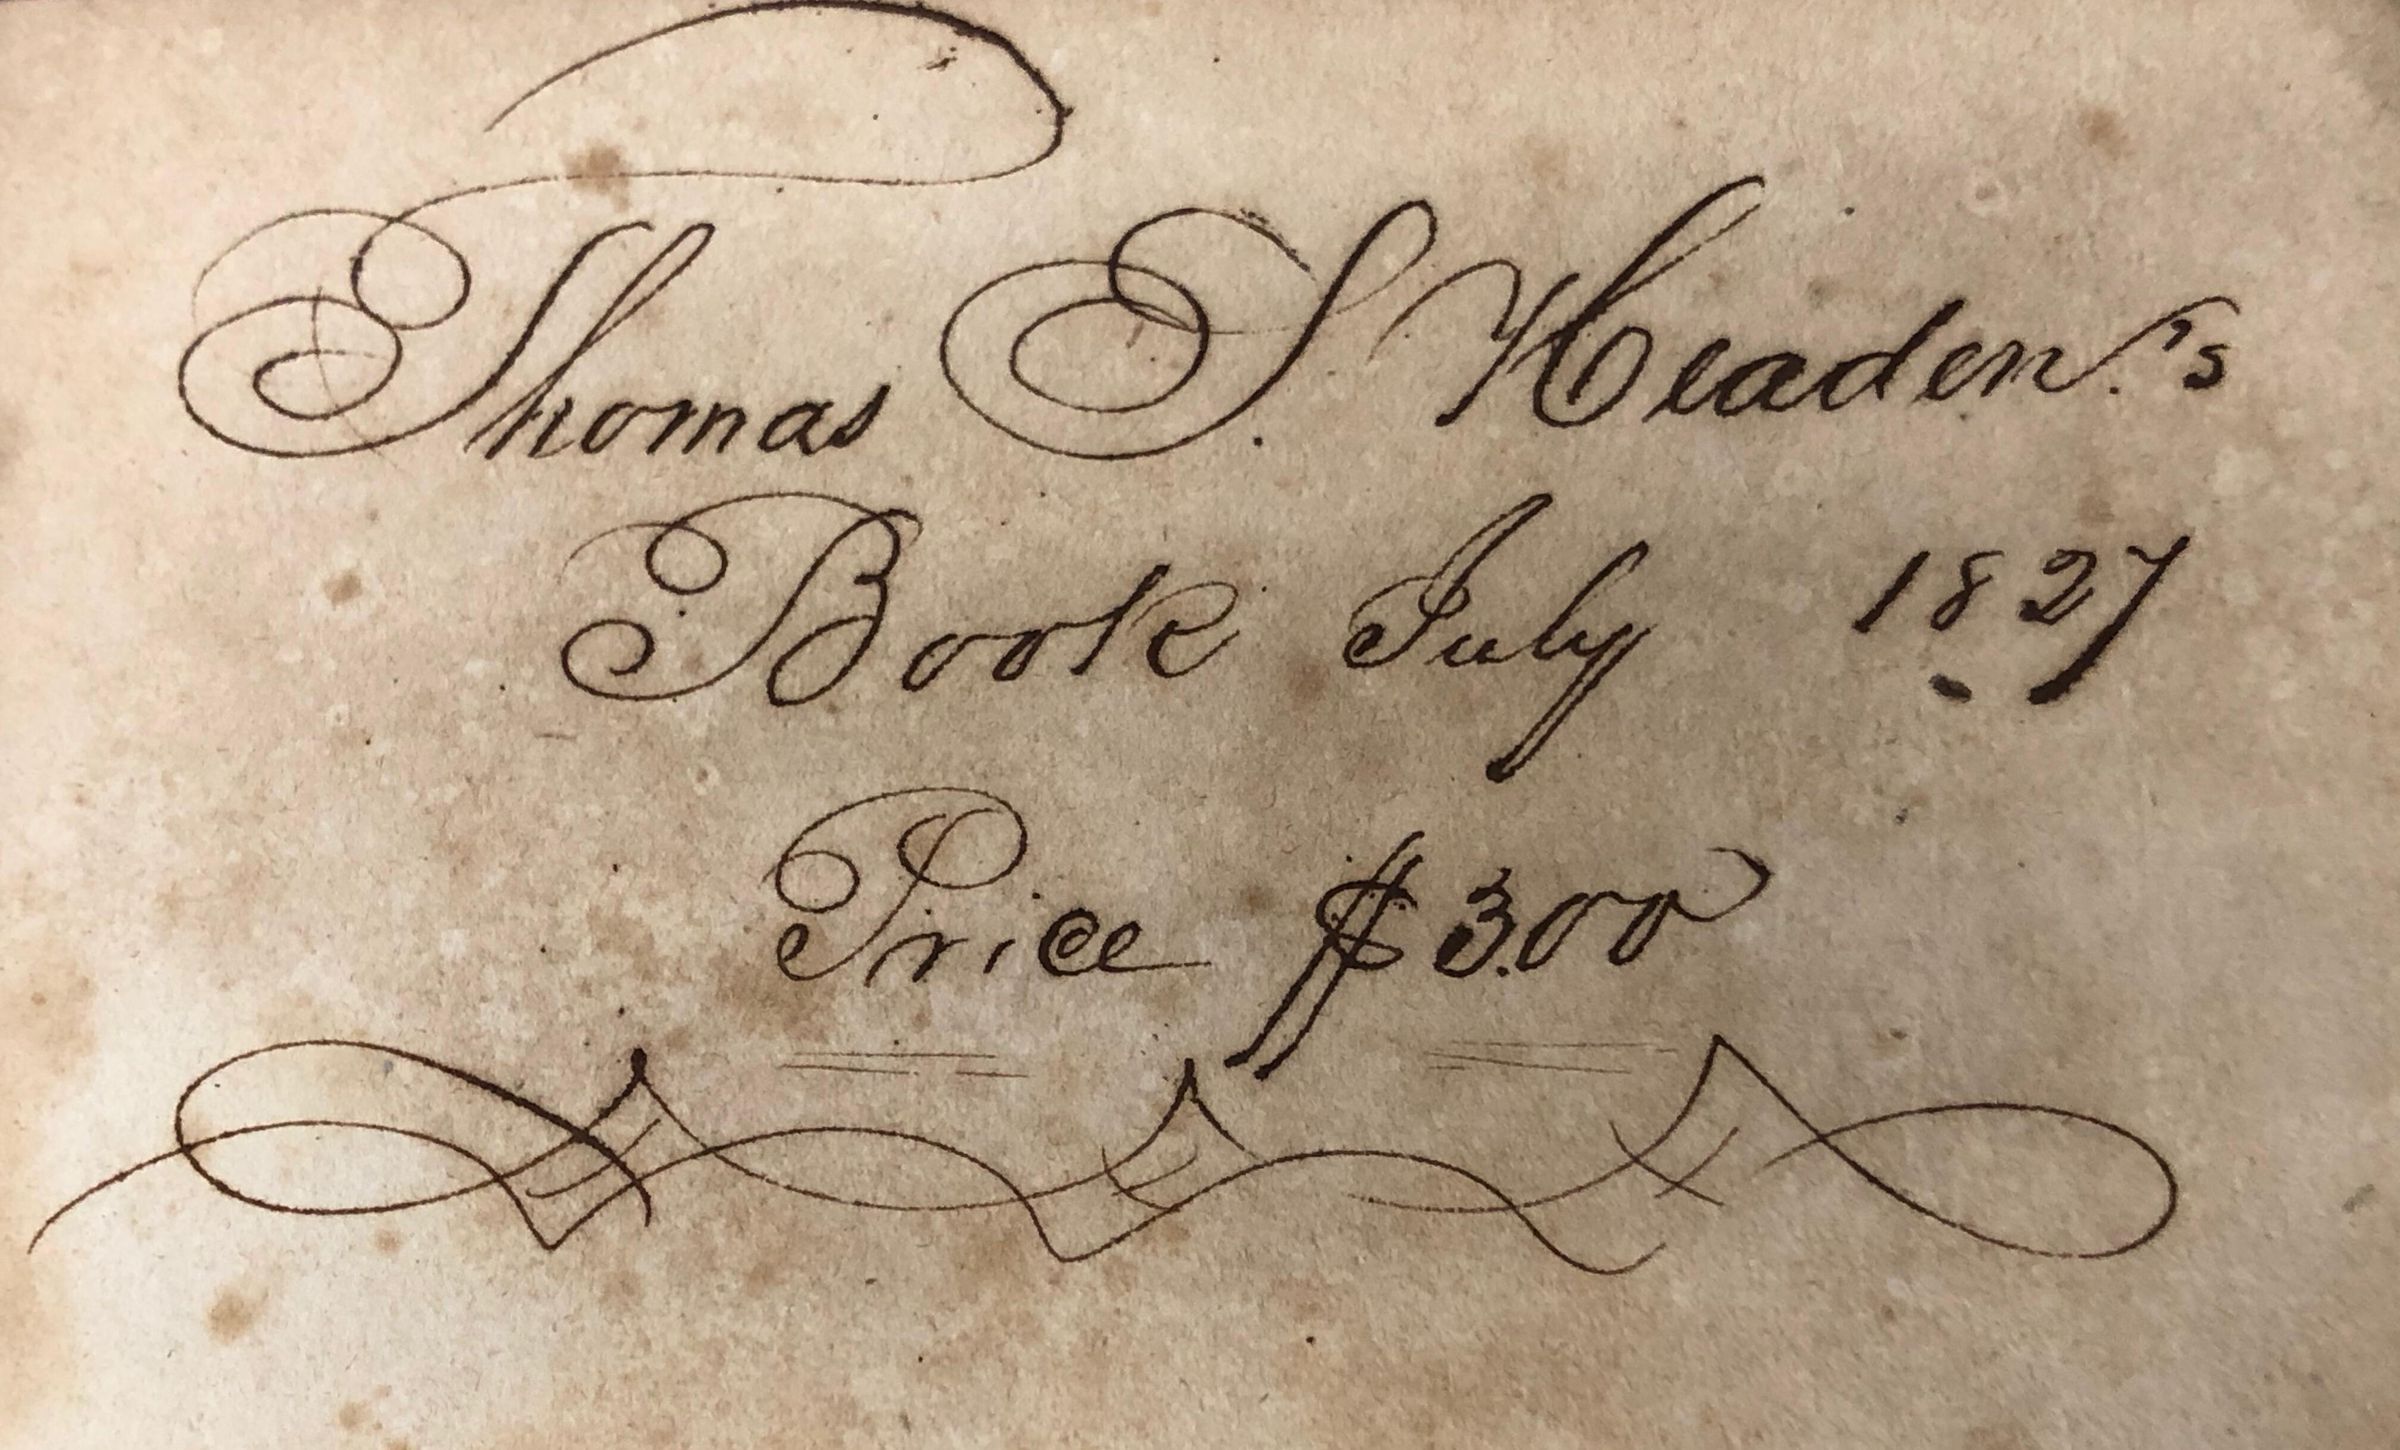 Thomas S. Headen.'s
Book July 1827
Price $3.00